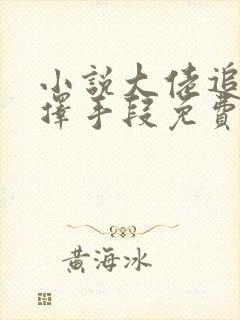 小說大佬追
擇手段免費
黃海冰